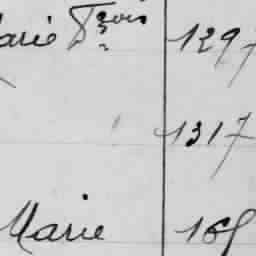 arie Fçois 1297
1317
Marie 165